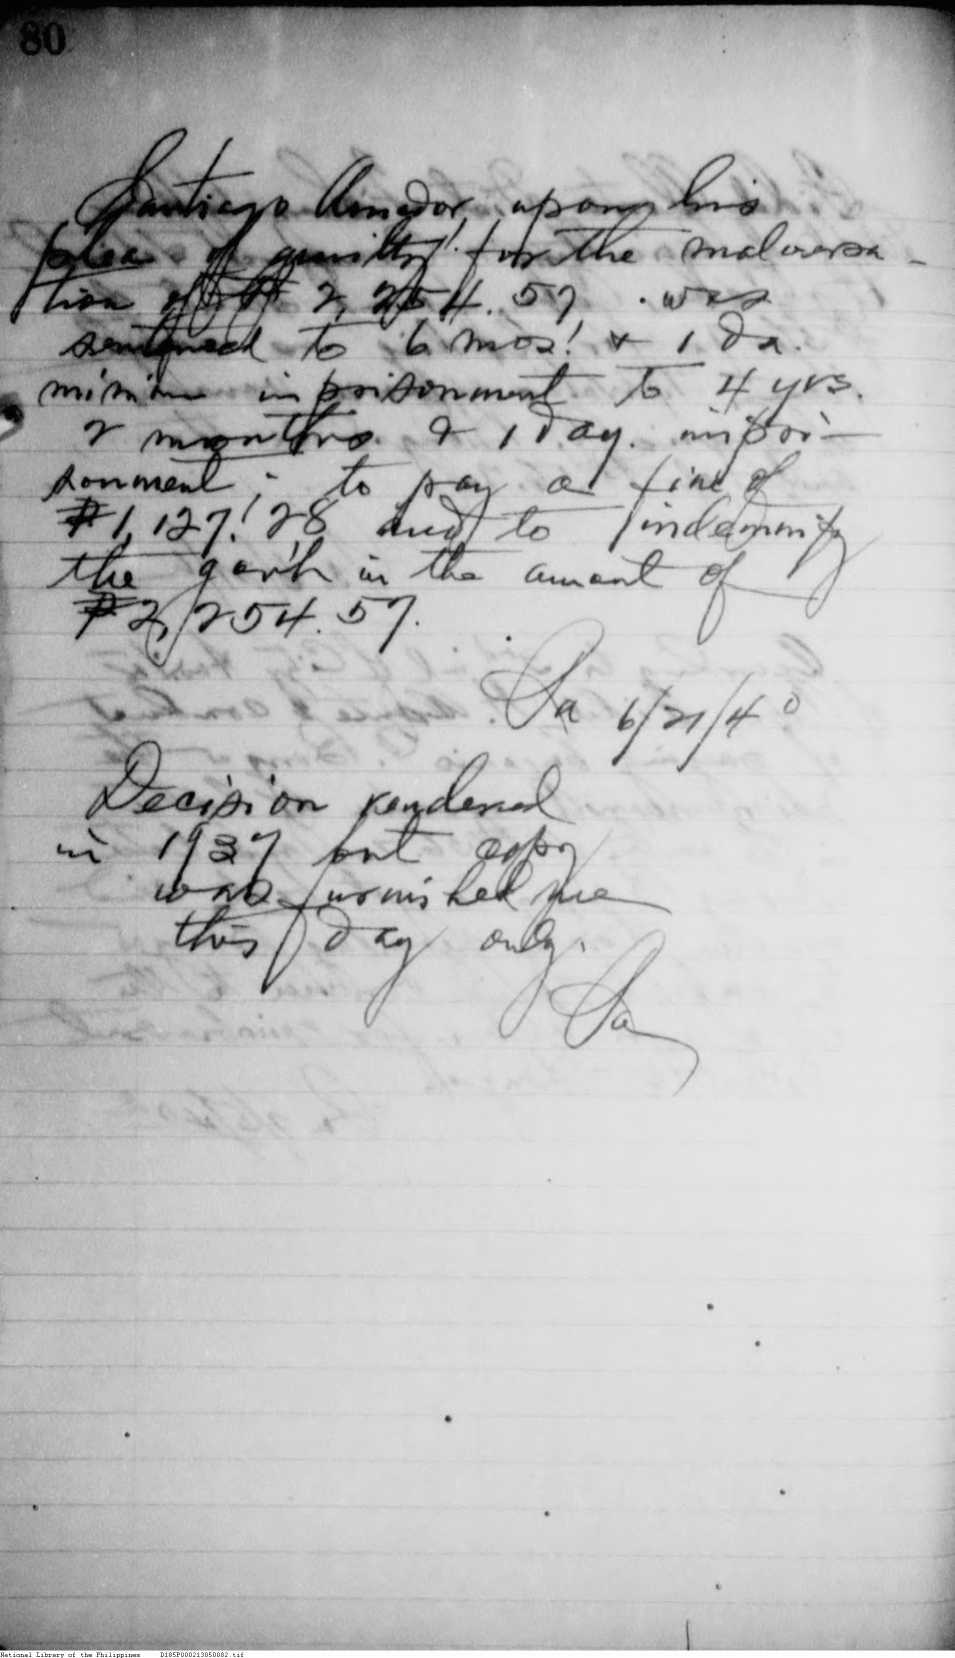 80
Santiago Amador, upon his
plea of guilty for the malversa-
tion of ₱ 2,254.57 was
sentenced to 6 mos. & 1 da.
minim imprisonment to 4 yrs.
2 months & 1 day. impri-
sonment; to pay a fine of
₱1,127.28 and to indemnify
the gov't in the amount of
₱2,254.57.
Sa 6/21/40
Decision rendered
in 1937 but copy
was furnished me
this day only.
Sa
National Library of the Philippines D185P000213050082.tif